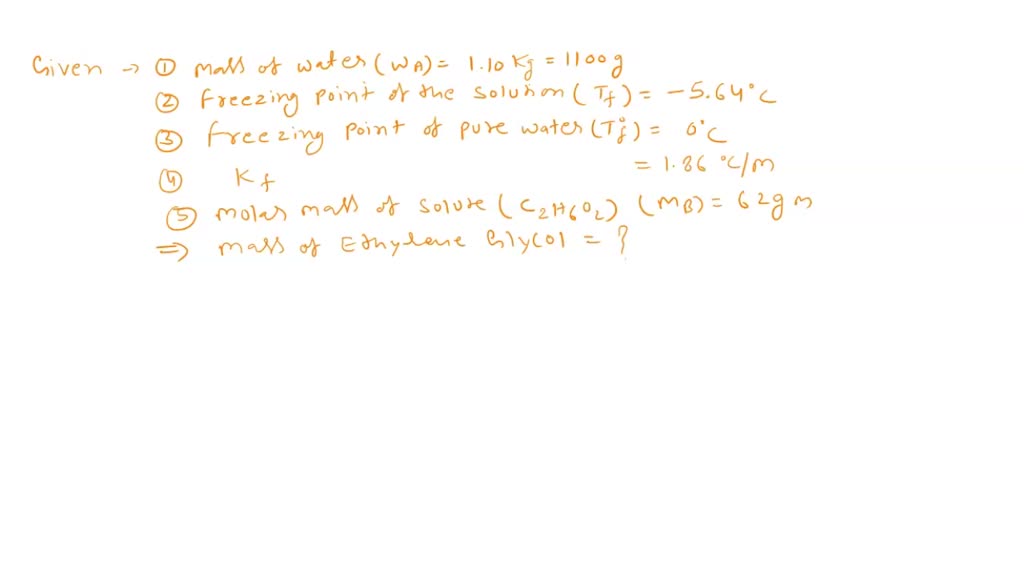 Given → ① Mass of water (WA) = 1.10 Kg = 1100g
② Freezing point of the solution (Tf) = -5.64°C
③ Freezing point of pure water (T°f) = 0°C
④ Kf = 1.86 °C/m
⑤ molar mass of solute (C2H6O2) (MB) = 62g m
⇒ mass of Ethylene Glycol = ?